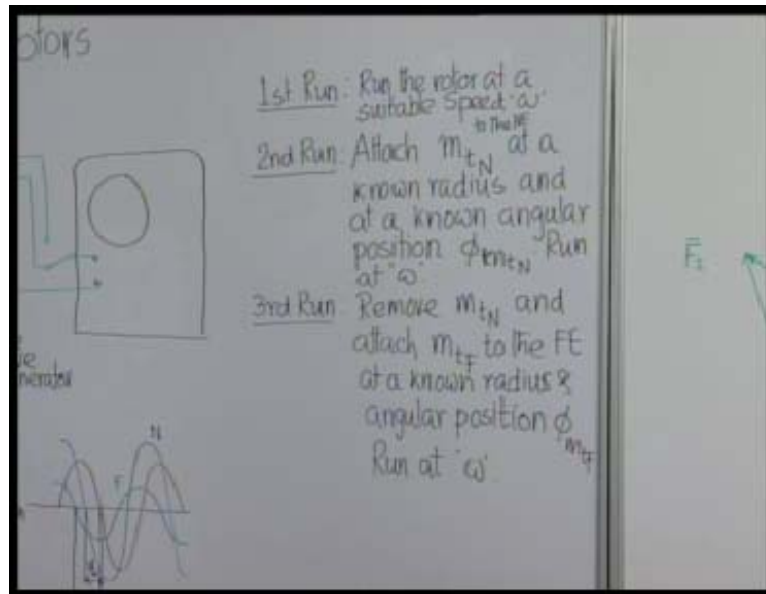 otors
1st Run: Run the rotor at a
suitable speed 'ω'
to the NE
2nd Run: Attach m_tN at a
known radius and
at a known angular
position ϕ_mtN Run
at 'ω'
3rd Run Remove m_tN and
attach m_tF to the FE
at a known radius &
angular position ϕ_mtF
Run at 'ω'.
nerator
N
F
F̅₁